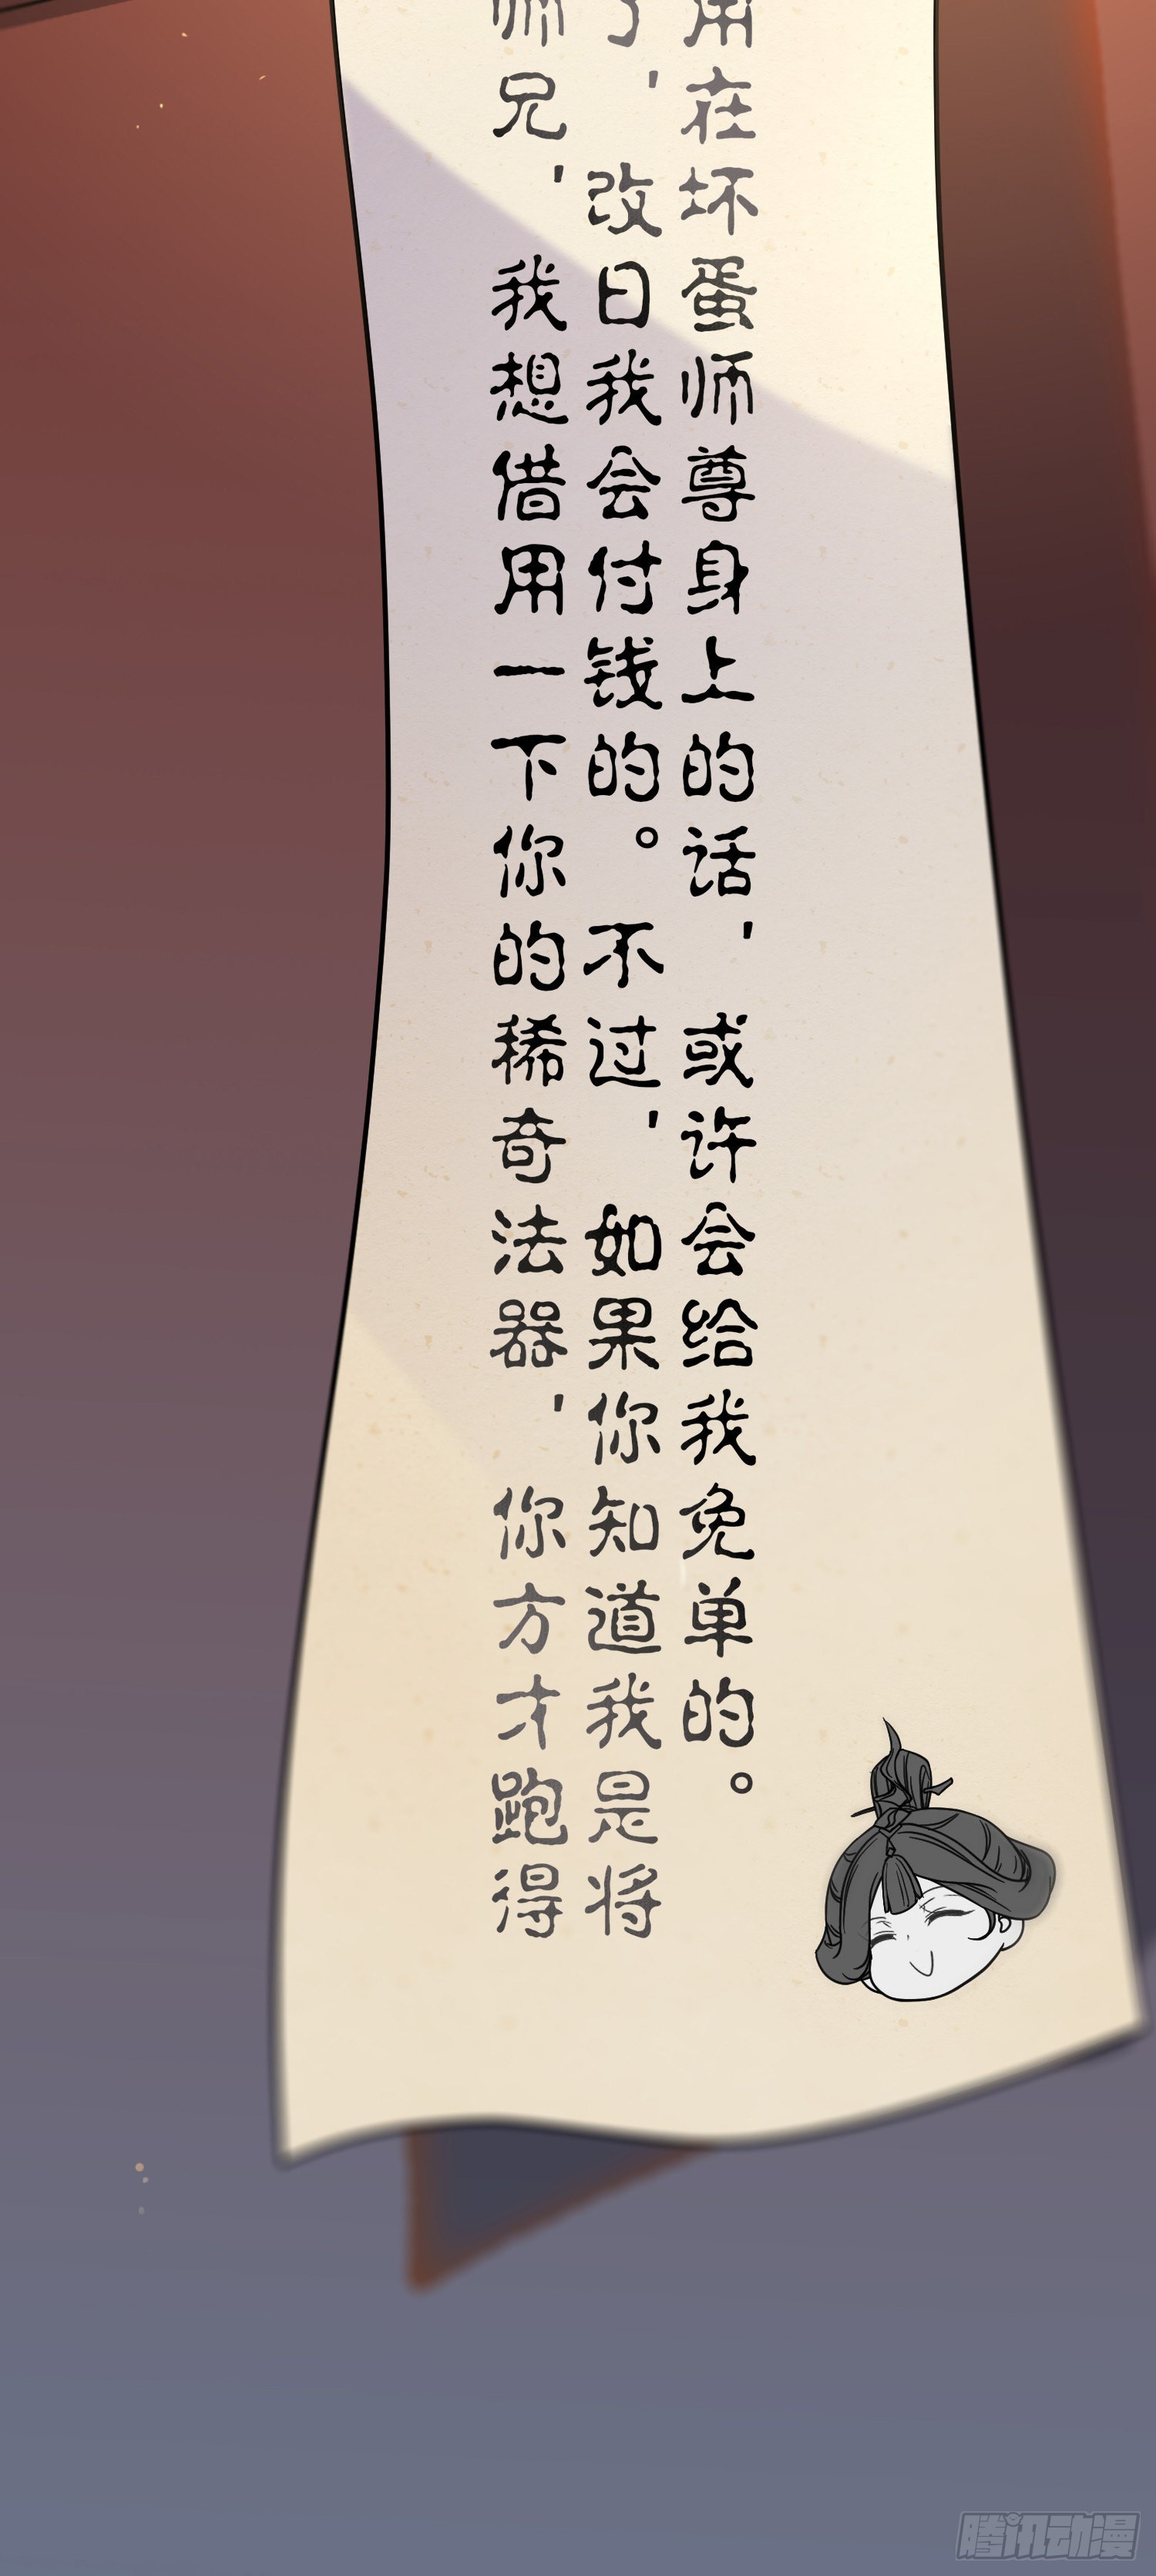 师兄，我想借用一下你的稀奇法器，你方才跑得
了，改日我会付钱的。不过，如果你知道我是将
用在坏蛋师尊身上的话，或许会给我免单的。
腾讯动漫